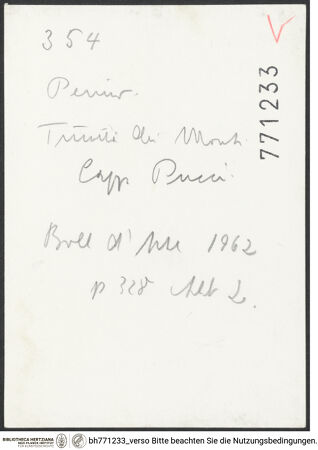 354
V
771233
Perino.
Trinità dei Monti
Capp Pucci.
Boll d'Arte 1962
p 328 Abb 2.
BIBLIOTHECA HERTZIANA
MAX-PLANCK-INSTITUT
FÜR KUNSTGESCHICHTE
bh771233_verso Bitte beachten Sie die Nutzungsbedingungen.